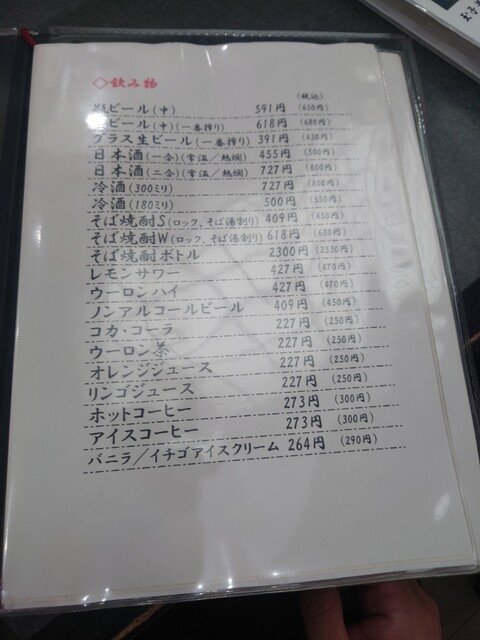 ◇飲み物
(税込)
ビール(中) 591円 (650円)
ビール(中)(一番搾り) 618円 (680円)
グラス生ビール(一番搾り) 391円 (430円)
日本酒(一合)(常温/熱燗) 455円 (500円)
日本酒(二合)(常温/熱燗) 727円 (800円)
冷酒(300ミリ) 727円 (800円)
冷酒(180ミリ) 500円 (550円)
そば焼酎S(ロック、そば湯割り) 409円 (450円)
そば焼酎W(ロック、そば湯割り) 618円 (680円)
そば焼酎ボトル 2300円 (2530円)
レモンサワー 427円 (470円)
ウーロンハイ 427円 (470円)
ノンアルコールビール 409円 (450円)
コカ・コーラ 227円 (250円)
ウーロン茶 227円 (250円)
オレンジジュース 227円 (250円)
リンゴジュース 227円 (250円)
ホットコーヒー 273円 (300円)
アイスコーヒー 273円 (300円)
バニラ/イチゴアイスクリーム 264円 (290円)